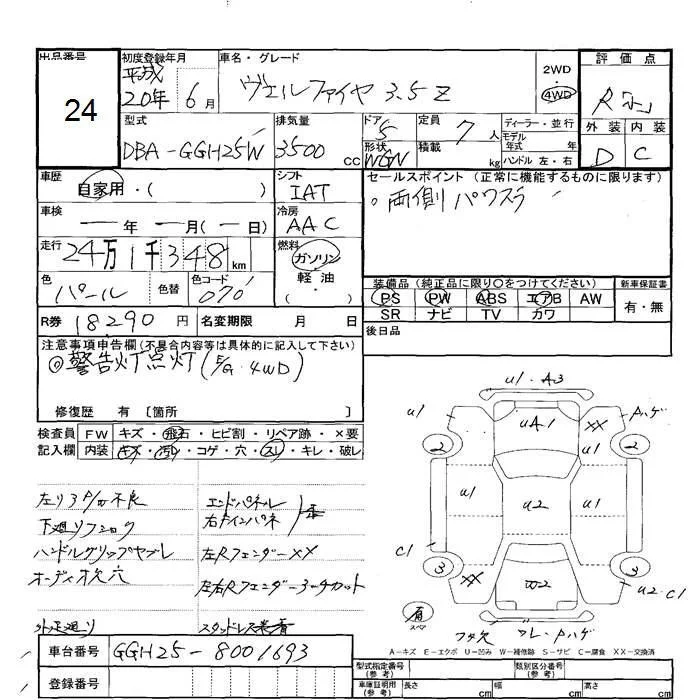 出品番号
24
初度登録年月
平成
20年 6月
車名・グレード
ヴェルファイヤ 3.5 Z
2WD
・
4WD
評価点
R
外装 内装
D C
型式
DBA-GGH25W
排気量
3500 cc
ドア 5
形状 WGN
定員 7 人
積載 kg
ディーラー・並行
モデル年式 年
ハンドル 左・右
車歴
自家用・( )
シフト
IAT
車検
ー年 ー月(ー日)
冷房
AAC
走行
24万1千348km
燃料
ガソリン
軽油
・
色
パール
色替
色コード
070
R券 18290円
名変期限 月 日
セールスポイント (正常に機能するものに限ります)
。両側パワスラ
装備品 (純正品に限り○をつけてください)
新車保証書
PS PW ABS エアB AW
SR ナビ TV カワ
有・無
後日品
注意事項申告欄(不具合内容等は具体的に記入して下さい)
◎警告灯点灯(E/G. 4WD)
修復歴 有 〔箇所 〕
検査員記入欄
FW キズ・飛石・ヒビ割・リペア跡・×要
内装 キズ・汚レ・コゲ・穴・スレ・キレ・破レ
左リアP/W不良
下廻りフショク
ハンドルグリップヤブレ
オーディオ欠穴
外装廻り
エンドパネル
右ドインパネ
左Rフェンダー××
左右Rフェンダーコーナーカット
スタッドレス装着
u1・A3
u1
××
A,ハゲ
uA1
2
2
u1
u2
u1
C1
3
3
××
W2
u2.C1
有
スペア
フタ欠
フレ・A,ハゲ
A-キズ E-エクボ U-凹み W-補修跡 S-サビ C-腐食 XX-交換済
車台番号 GGH25-8001693
登録番号
型式指定番号(参考)
類別区分番号(参考)
車庫証明用(参考) 長さ cm 幅 cm 高さ cm